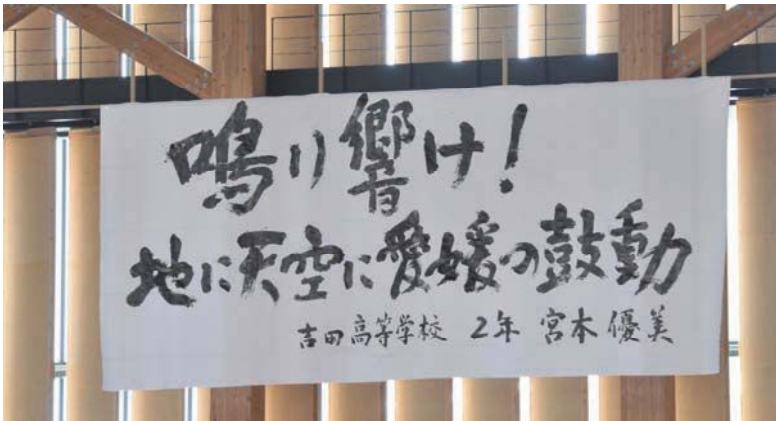 鳴り響け!
地に天空に愛媛の鼓動
吉田高等学校 2年 宮本優美